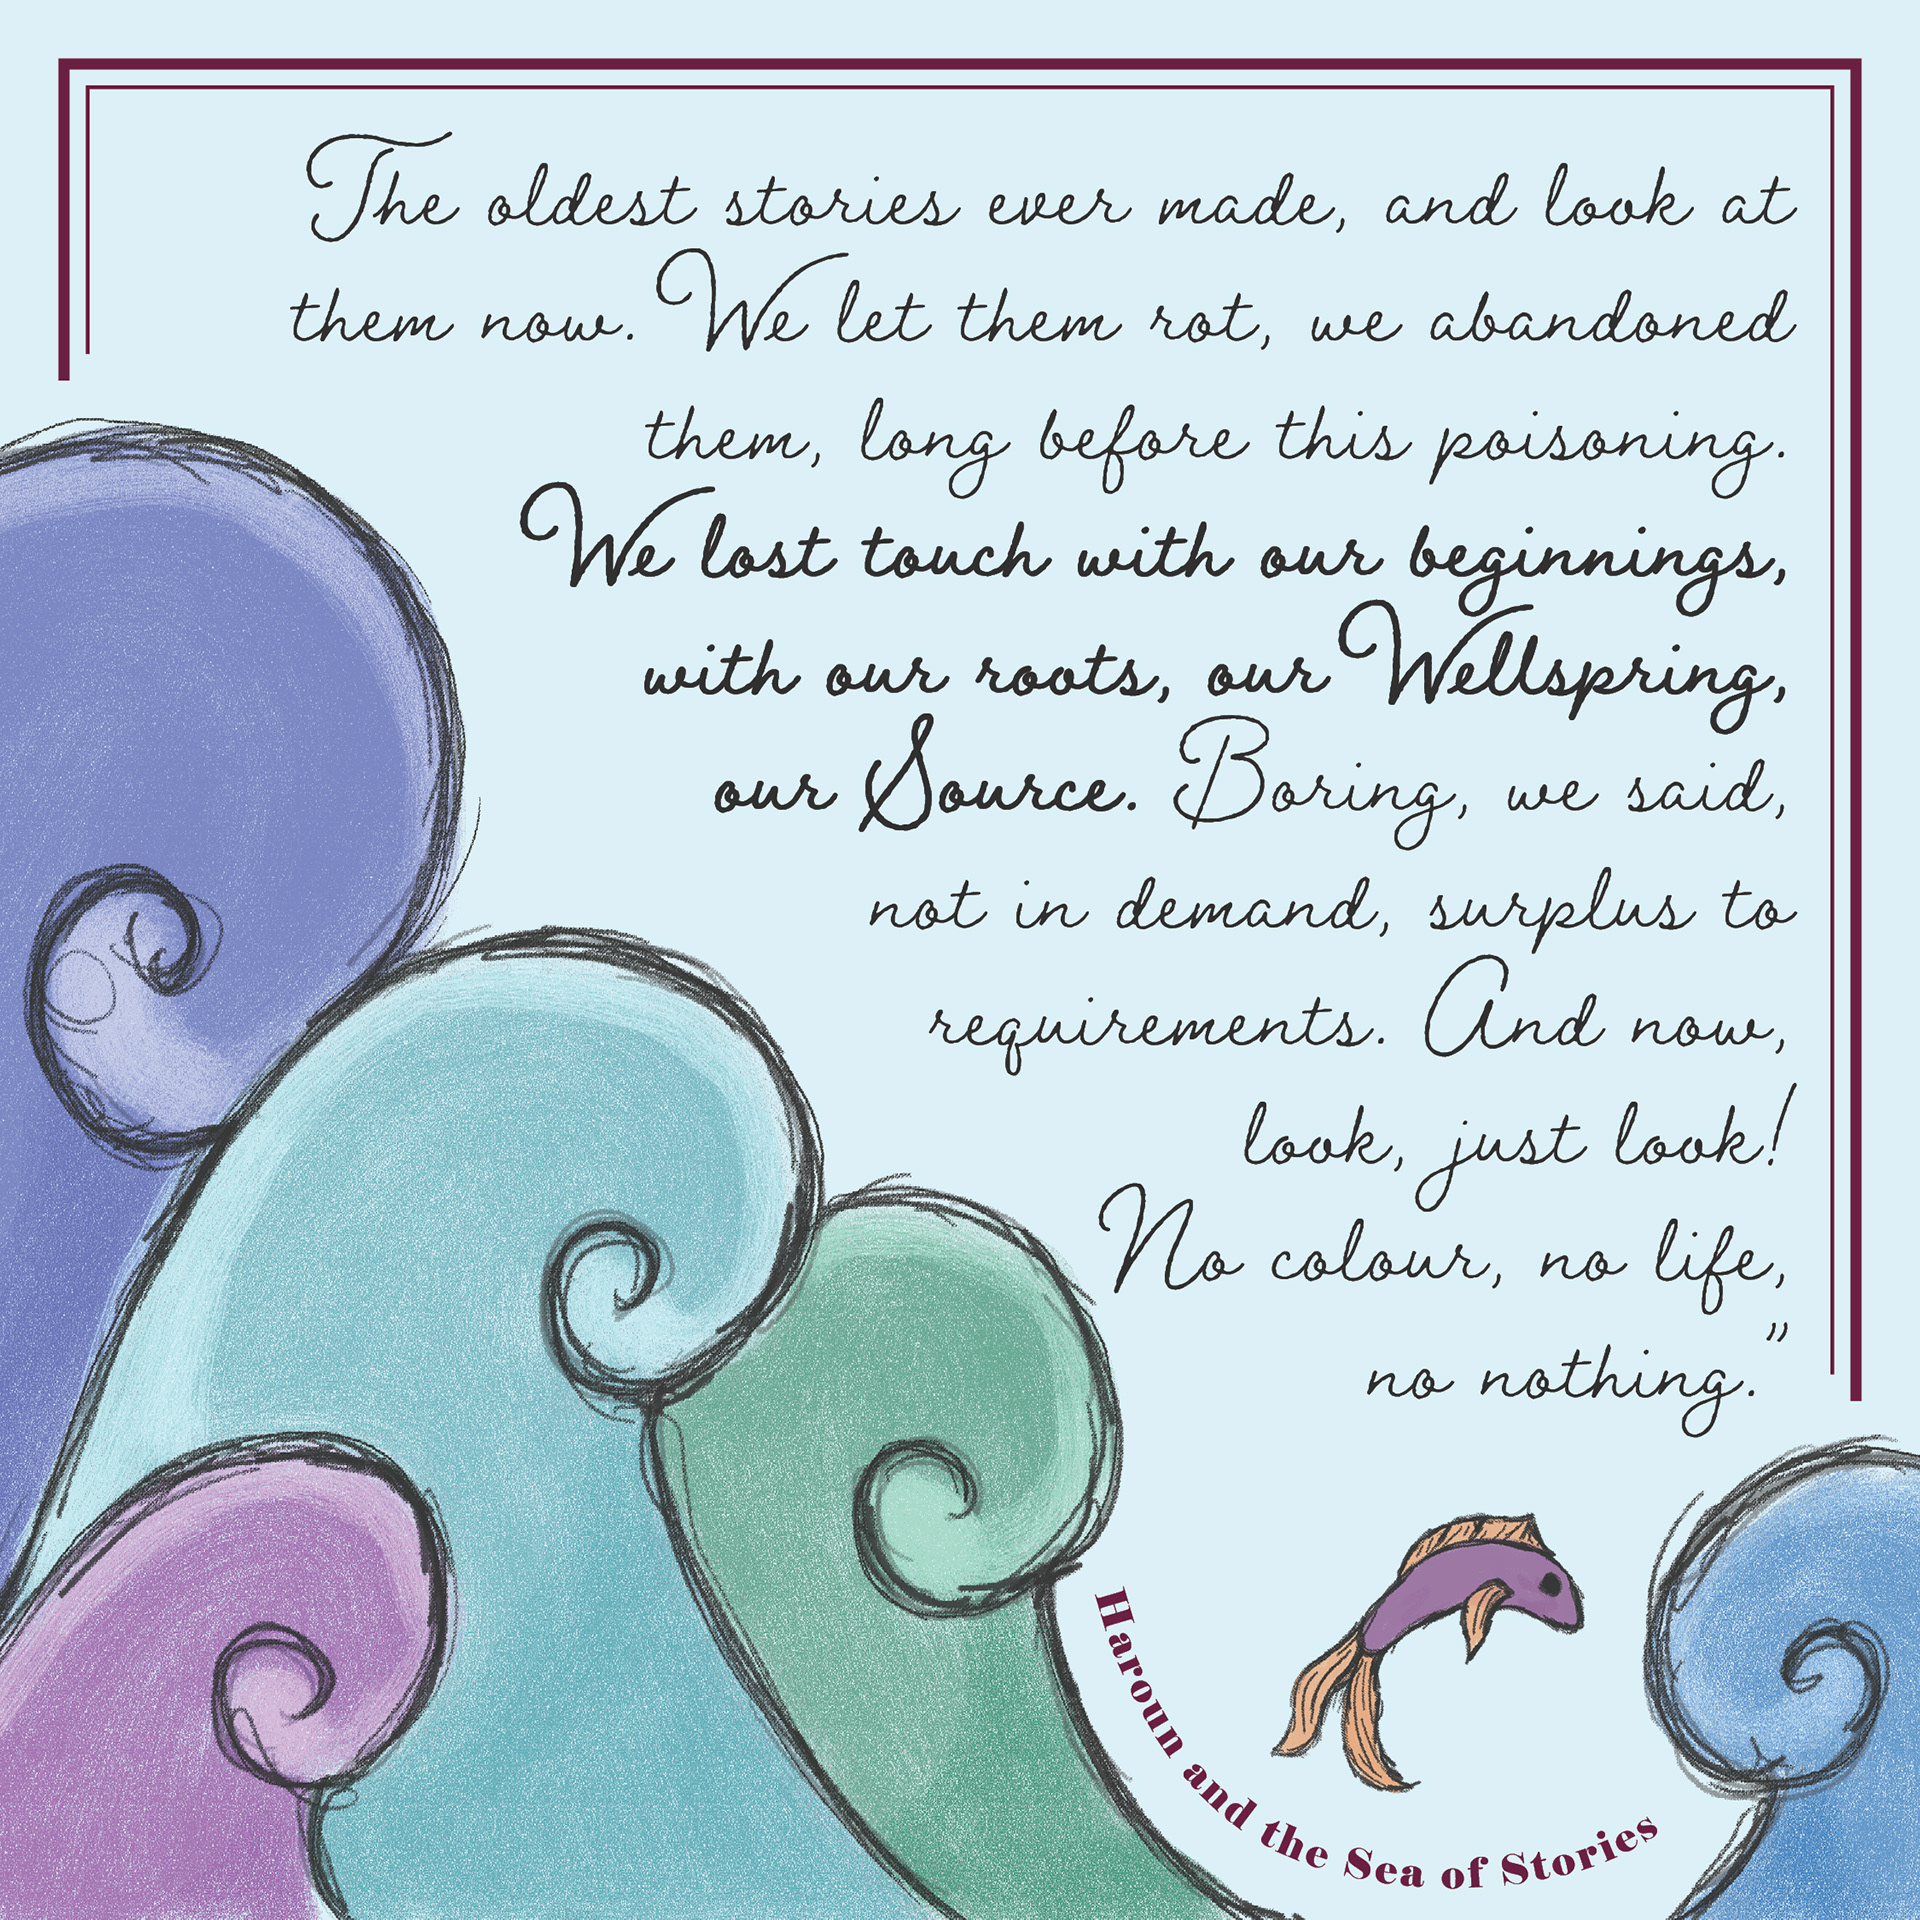 The oldest stories ever made, and look at
them now. We let them rot, we abandoned
them, long before this poisoning.
We lost touch with our beginnings,
with our roots, our Wellspring,
our Source. Boring, we said,
not in demand, surplus to
requirements. And now,
look, just look!
No colour, no life,
no nothing.”
Haroun and the Sea of Stories